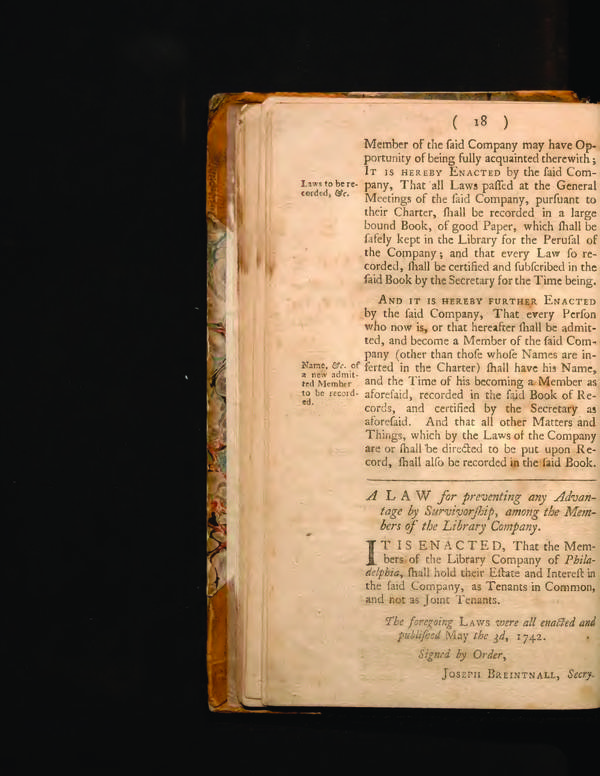 ( 18 )
Member of the ſaid Company may have Op-
portunity of being fully acquainted therewith ;
IT IS HEREBY ENACTED by the ſaid Com-
Laws to be re-
corded, &c.
pany, That all Laws paſſed at the General
Meetings of the ſaid Company, purſuant to
their Charter, ſhall be recorded in a large
bound Book, of good Paper, which ſhall be
ſafely kept in the Library for the Peruſal of
the Company ; and that every Law ſo re-
corded, ſhall be certified and ſubſcribed in the
ſaid Book by the Secretary for the Time being.
AND IT IS HEREBY FURTHER ENACTED
by the ſaid Company, That every Perſon
who now is, or that hereafter ſhall be admit-
ted, and become a Member of the ſaid Com-
pany (other than thoſe whoſe Names are in-
Name, &c. of
a new admit-
ted Member
to be record-
ed.
ſerted in the Charter) ſhall have his Name,
and the Time of his becoming a Member as
aforeſaid, recorded in the ſaid Book of Re-
cords, and certified by the Secretary as
aforeſaid. And that all other Matters and
Things, which by the Laws of the Company
are or ſhall be directed to be put upon Re-
cord, ſhall alſo be recorded in the ſaid Book.
A LAW for preventing any Advan-
tage by Survivorſhip, among the Mem-
bers of the Library Company.
IT IS ENACTED, That the Mem-
bers of the Library Company of Phila-
delphia, ſhall hold their Eſtate and Intereſt in
the ſaid Company, as Tenants in Common,
and not as Joint Tenants.
The foregoing LAWS were all enacted and
publiſhed May the 3d, 1742.
Signed by Order,
JOSEPH BREINTNALL, Secry.